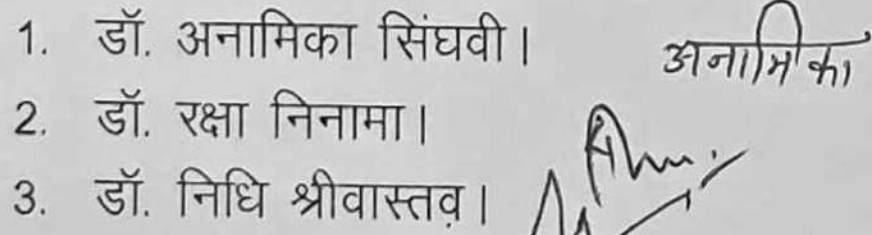 1. डॉ. अनामिका सिंघवी। अनामिका
2. डॉ. रक्षा निनामा।
3. डॉ. निधि श्रीवास्तव।